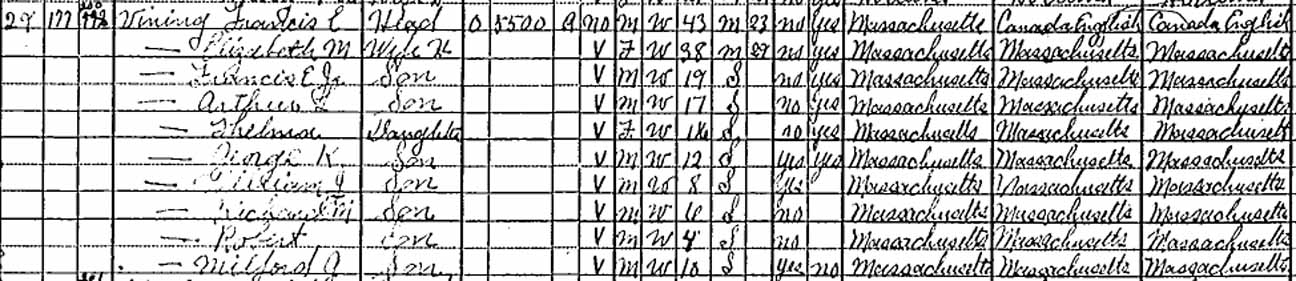 29 177 Vining Francis E Head O 5500 R No M W 43 M 23 no yes Massachusetts Canada English Canada English
— Elizabeth M Wife H V F W 38 M no yes Massachusetts Massachusetts Massachusetts
— Francis E Jr Son V M W 19 S no yes Massachusetts Massachusetts Massachusetts
— Arthur Son V M W 17 S no yes Massachusetts Massachusetts Massachusetts
— Thelma Daughter V F W S no yes Massachusetts Massachusetts Massachusetts
— George K Son V M W 12 S yes yes Massachusetts Massachusetts Massachusetts
— William J Son V M W 8 S yes Massachusetts Massachusetts Massachusetts
— Richard M Son V M W 6 S no Massachusetts Massachusetts Massachusetts
— Robert Son V M W 4 S no Massachusetts Massachusetts Massachusetts
— Milford J Son V M W 10 S yes no Massachusetts Massachusetts Massachusetts